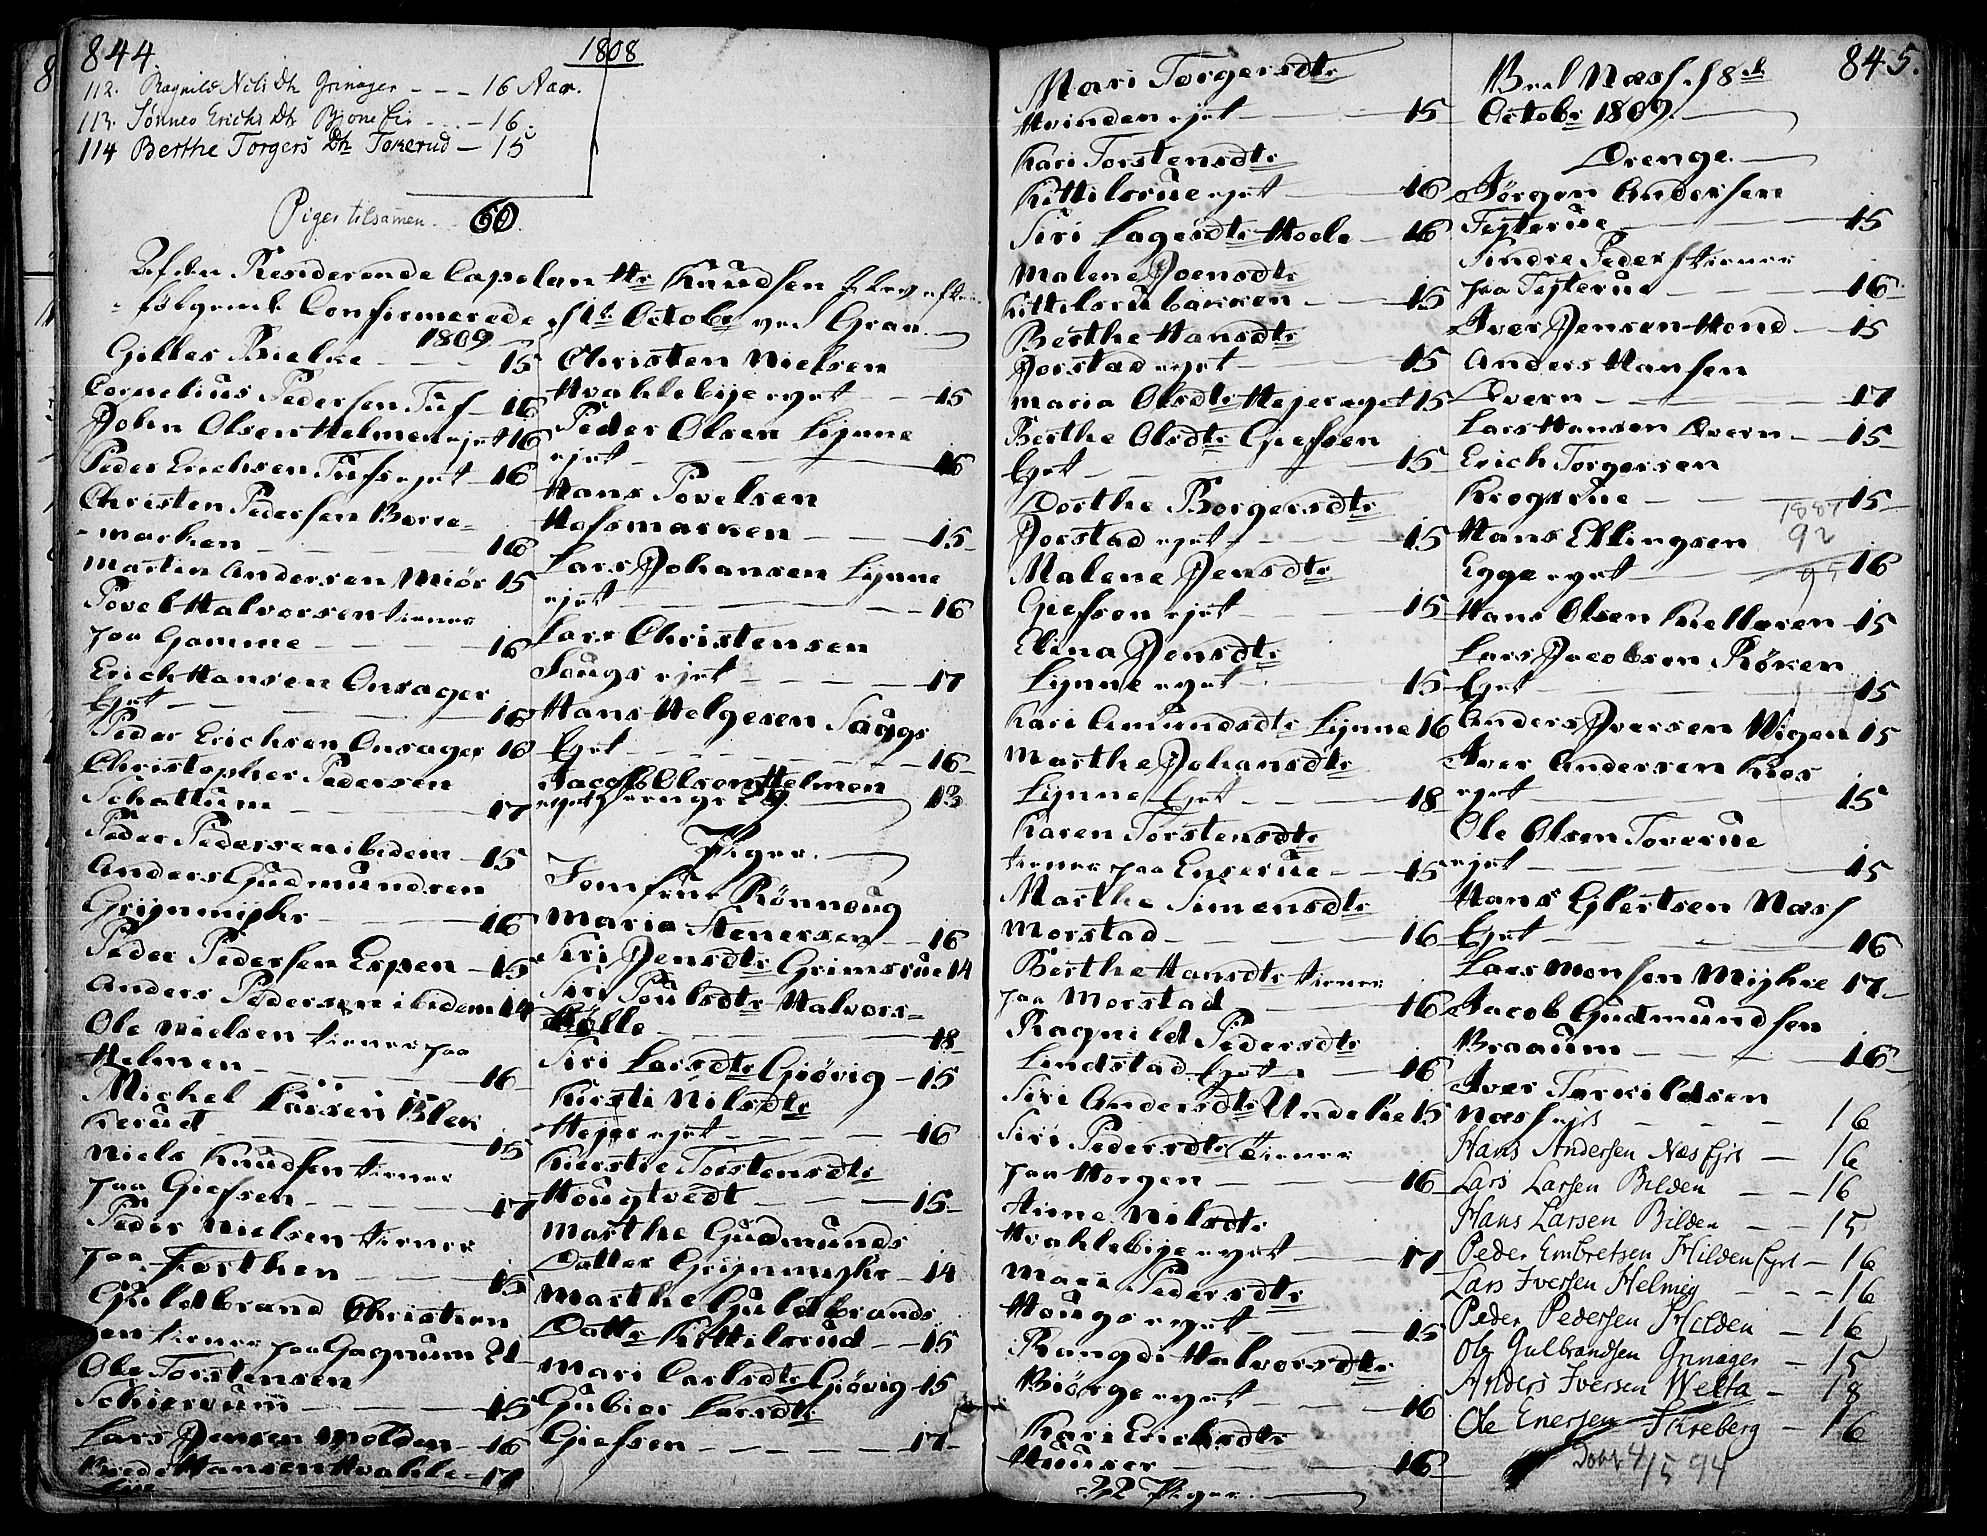 844.
1808
112. Ragnild Nils Dtr Grinager - - - 16 Aar.
113. Sønnev Erichs Dtr Bjone Ei - - - 16.
114 Berthe Torgers Dtr Tokerud - 15
Piger tilsamen. 60.
Af den Residerende Capelan Hr Knudsen blev efter-
følgende Confirmerede d 1t Octobr ved Gran.
1809
Gilles Bielke - - - 15
Cornelius Pedersen Tuf - 16
John Olsen Helmen ejet 16
Peder Erichsen Tufs ejet - 16
Christen Pedersen Borre-
-marken - - - 16
Martin Andersen Miør 15
Povel Halvorsen tiener
paa Gamme - - - 16
Erich Hansen Onsager
Ejet - - - 16
Peder Erichsen Onsager 16
Christopher Pedersen
Schattum - - - 17
Peder Pedersen ibidem - 15
Anders Gudmundsen
Grijnmijhr - - - 16
Peder Pedersen Espen - 15
Anders Pedersen ibidem 14
Ole Nielsen tiener paa
Helmen - - - 16
Michel Larsen Blek
kerud - - - 15
Niels Knudsen tiener
paa Giefsen - - - 17
Peder Nielsen tiener
paa Forthen - - - 15
Guldbrand Christien
sen tiener paa Gagnum 21
Ole Torstensen
Schiervum - - - 15
Lars Jensen Molden - 16
Brede Hansen Hvahle- 17
bye
Christen Nielsen
Hvahlebije ejet - - 15
Peder Olsen Lijnne
ejet - - - 16
Hans Povelsen
Hofsmarken - - - 15
Lars Johansen Lijnne
ejet - - - 16
Lars Christensen
Saugs ejet - - - 17
Hans Helgesen Saugs
Ejet - - - 16
Jacob Olsen Helmen
ejet - 13
Piger.
Jomfrue Rønnoug
Maria Stenersen - 16
Siri Jensdtr Grimsrue 14
Siri Poulsdtr Halvors-
Bølle - - - 18
Siri Larsdtr Giøvig - 15
Kirsti Nilsdtr
Hejer ejet - - - 16
Kierstie Torstensdtr
Hougtvedt - - - 15
Marthe Gudmunds
Datter Grijnmijhr - 14
Marthe Guldbrands
Dattr Kittilsrud - 15
Mari Carlsdtr Giøvig 15
Gubiør Larsdtr
Giefsen - - - 17
845.
Mari Torgersdtr
Hvinden ejet - - - 15
Kari Torstensdtr
Kittilsrue ejet - - - 16
Siri Lagesdtr Hoele - 16
Malene Joensdtr
Kittilsrubakken - - - 15
Berthe Hansdtr
Jorstad ejet - - - 15
Maria Olsdtr Hejer ejet 15
Berthe Olsdtr Giefsen
Ejet - - - 15
Dorthe Borgersdtr
Jorstad ejet - - - 15
Malene Jensdtr
Giefsen ejet - - - 15
Elina Jensdtr
Lijnne ejet - - - 15
Kari Amundsdtr Lijnne 16
Marthe Johansdtr
Lijnne Ejet - - - 18
Karen Torstensdtr
tiener paa Enserue - - 15
Marthe Simensdtr
Morstad - - - 16
Berthe Hansdtr tiener
paa Morstad - - - 16
Ragnild Pedersdtr
Lindstad Ejet - - 16
Siri Andersdtr Undelie 15
Siri Pedersdtr tiener
paa Horgen - - - 16
Hvahlebije ejet - - - 17
Mari Pedersdtr
Hougs ejet - - - 15
Rangdi Halvorsdtr
Biørge ejet - - - 16
Kari Erichsdtr
Huuser - - - 16
32 Piger.
Ved Næss d 8de
Octobr 1809.
Drenge.
Jørgen Andersen
Tejterue - - - 15
Sindre Peders tiener
paa Tejterue - - - 16
Iver Jensen Hond - - 15
Anders Hansen
Dvern - - - 17
Lars Hansen Dvern - 15
Erich Torgersen
Krogsrue - - - 15
1887
92
95
Hans Ellingsen
Egge ejet - - - 16
Hans Olsen Kielleren 15
Lars Jacobsen Røken
Ejet - - - 15
Anders Iversen Wigen 15
Iver Andersen Kros
ejet - - - 15
Ole Olsen Toverue
ejet - - - 15
Hans Ejlertsen Næss
Ejet - - - 16
Lars Monsen Mijhre 17
Jacob Gudmundsen
Braaum - - - 16
Iver Tarkildsen
Næss ejet - - - 16
Hans Andersen Næs Ejet - 16
Lars Larsen Bilden - - 16
Hans Larsen Bilden - - 15
Peder Embretsen Hilden Ejet - 16
Lars Iversen Helmey - - - 16
Peder Pedersen Hilden - 16
Ole Gulbrandsen Grinager - 15
Anders Iversen Wefta - 18
Ole Enersen Skreberg - 16
4/5 94